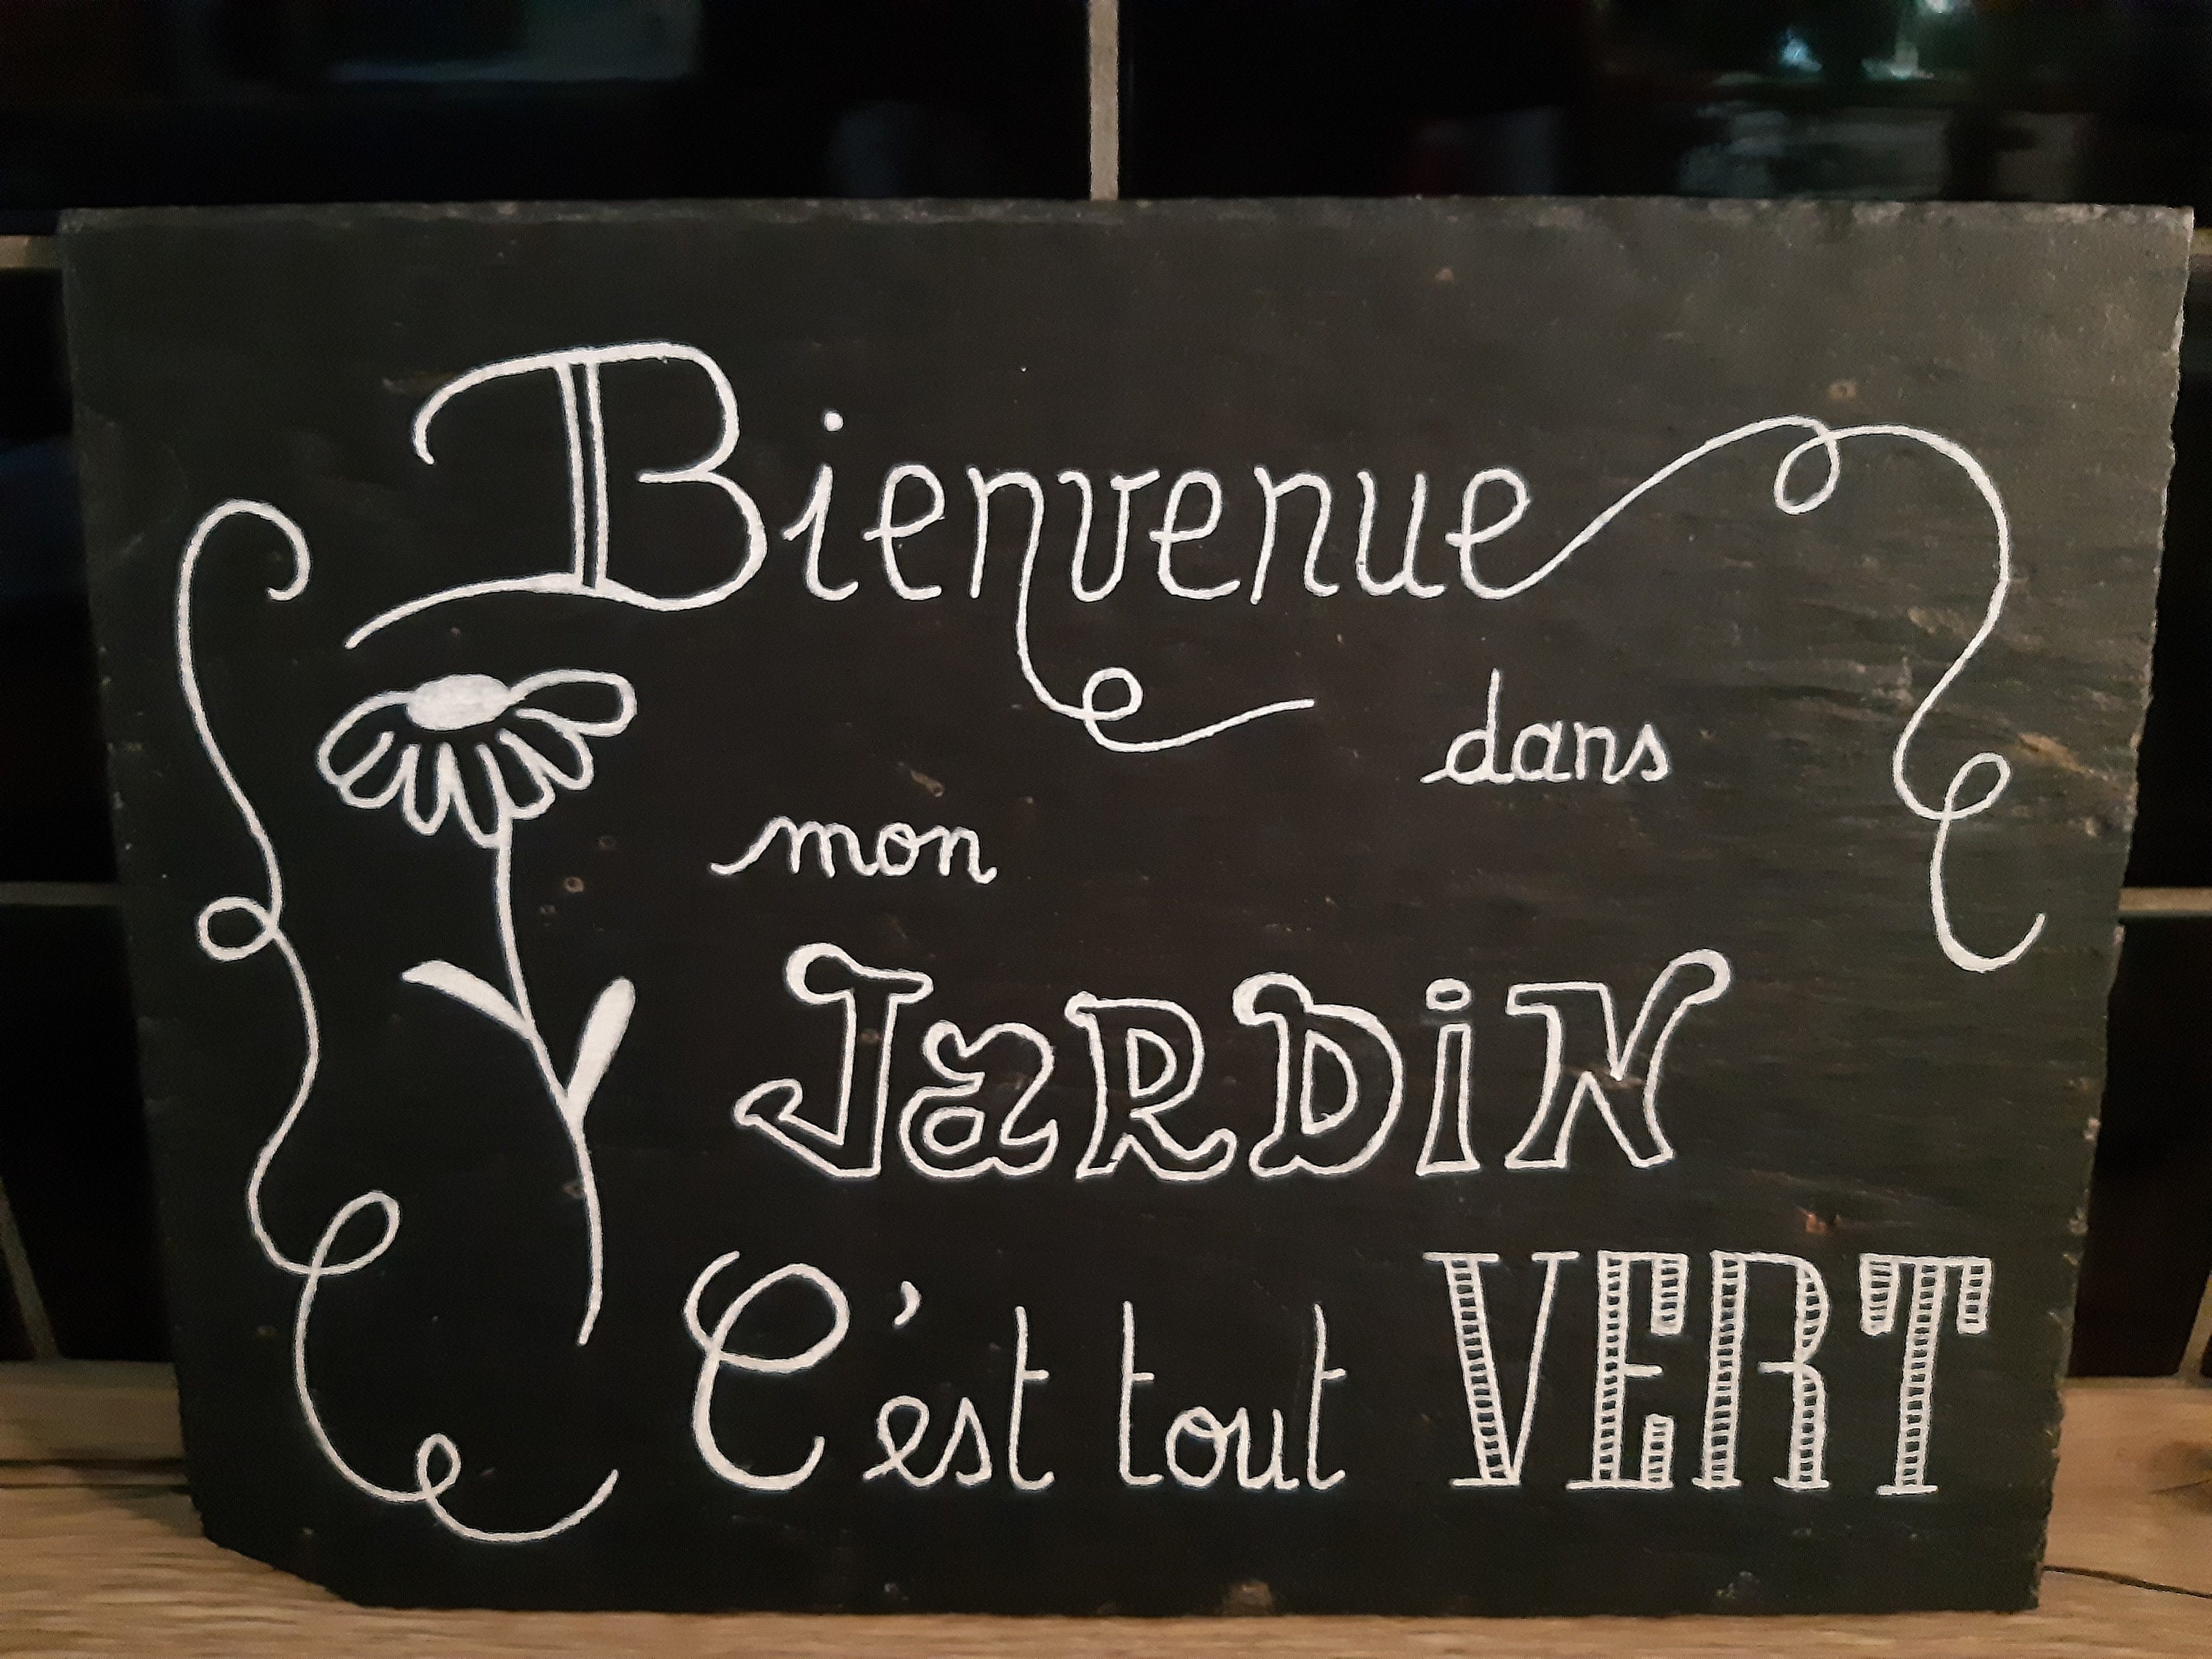 Bienvenue
dans
mon
JaRDiN
C'est tout VERT